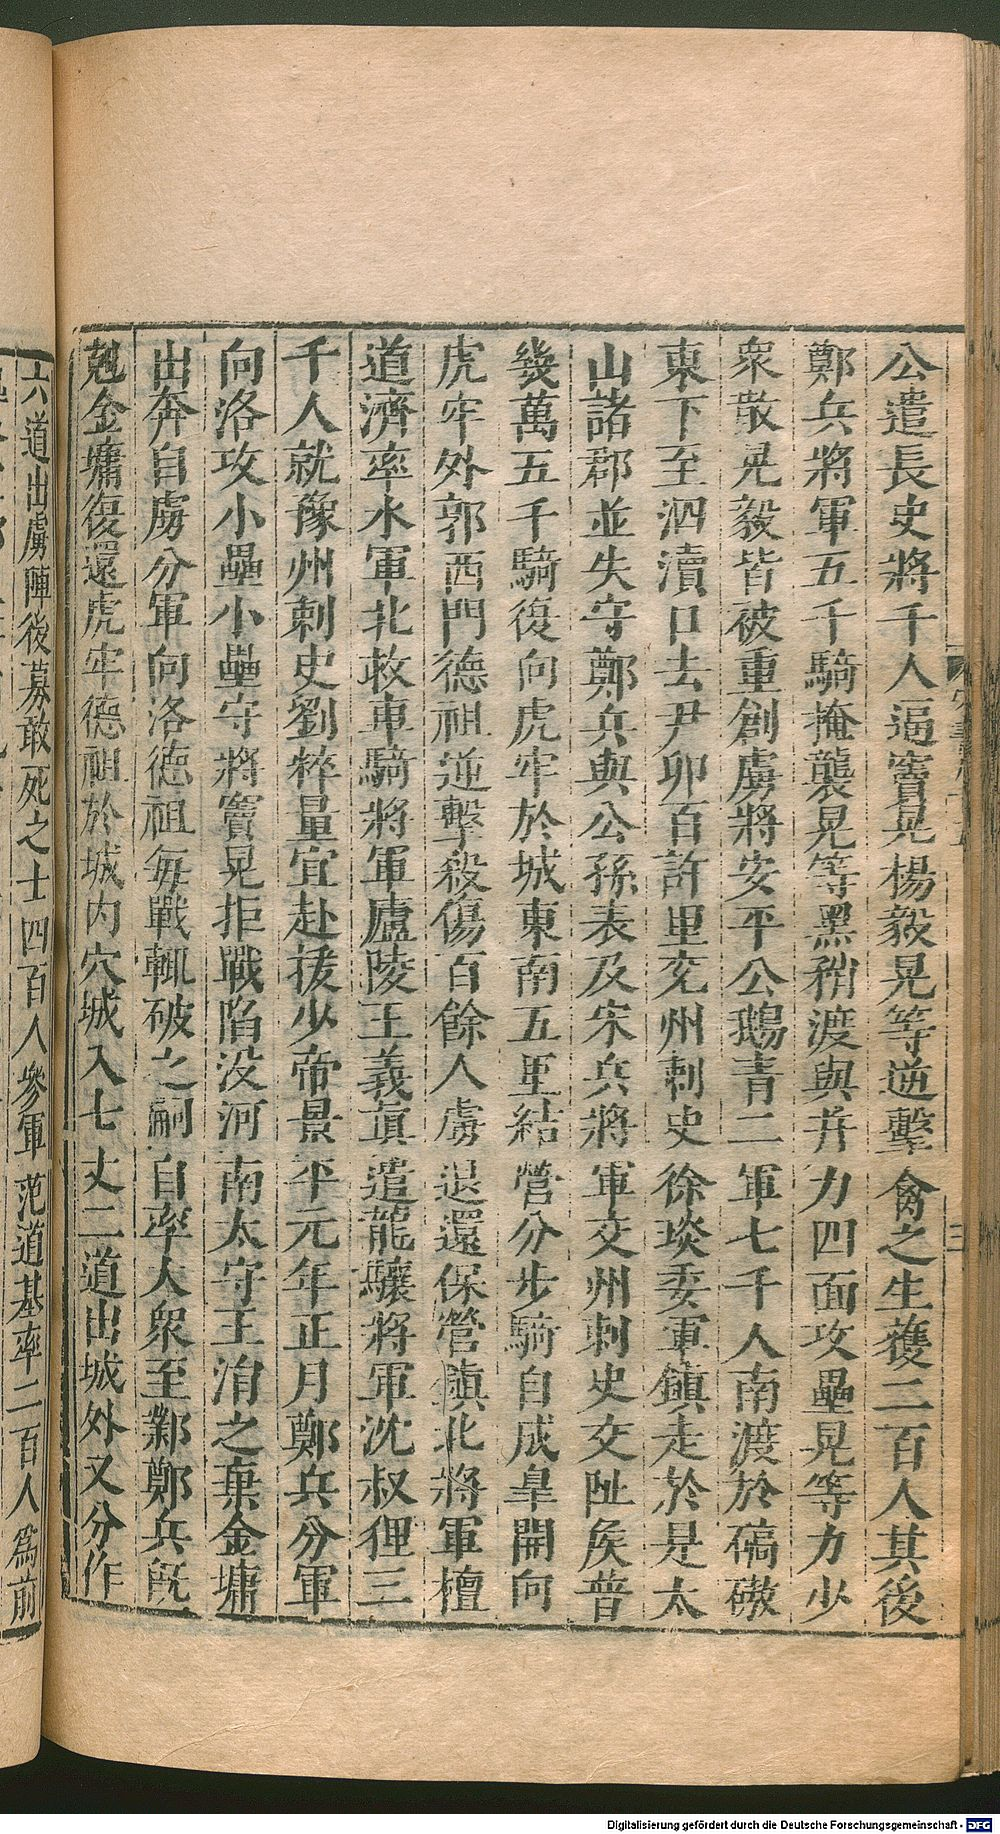 公遣長史將千人逼竇晃楊毅晃等逆擊禽之生獲二百人其後
鄭兵將軍五千騎掩襲晃等黑矟渡與并力四面攻壘晃等力少
衆散晃毅皆被重創虜將安平公鵝青二軍七千人南渡於碻磝
東下至泗瀆口去尹卯百許里兗州刺史徐琰委軍鎮走於是太
山諸郡並失守鄭兵與公孫表及宋兵將軍交州刺史交阯侯普
幾萬五千騎復向虎牢於城東南五里結營分步騎自成皐開向
虎牢外郭西門德祖逆擊殺傷百餘人虜退還保營鎮北將軍檀
道濟率水軍北救車騎將軍廬陵王義眞遣龍驤將軍沈叔狸三
千人就豫州刺史劉粹量宜赴援少帝景平元年正月鄭兵分軍
向洛攻小壘小壘守將竇晃拒戰陷没河南太守王涓之棄金墉
出奔自虜分軍向洛德祖每戰輒破之嗣自率大衆至鄴鄭兵旣
尅金墉復還虎牢德祖於城内穴城入七丈二道出城外又分作
六道出虜陣後募敢死之士四百人參軍范道基率二百人爲前
Digitalisierung gefördert durch die Deutsche Forschungsgemeinschaft - DFG